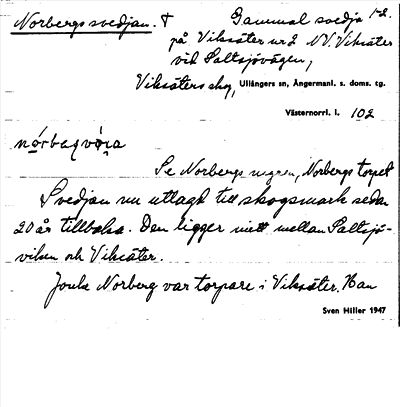 Norbergssvedjan. † Gammal svedja 1-2.
på Viksäter nr 2 NV. Viksäter
vid Saltsjövägen,
Viksäters skog, Ullångers sn, Ångermanl. s. doms. tg.
Västernorrl. l. 102
Se Norbergsmyren, Norbergstorpet
Svedjan nu utlagd till skogsmark sedan
20 år tillbaka. Den ligger mitt mellan Saltsjö-
viken och Viksäter.
Norberg var torpare i Viksäter. Han
Sven Hiller 1947